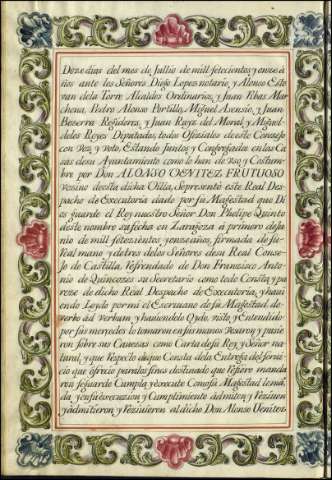 Doze dias del mes de Jullio de mill setecientos y onze a
ños ante los Señores Diego Lopes notario, y Alonso Este
van de la Torre Alcaldes Ordinarios, y Juan Ribas Mar
chena, Pedro Alonso Portillo, Miguel Asensio, y Juan
Bezerra Rejidores, y Juan Ruyz del Moral, y Miguel
de los Reyes Diputados, todos Ofiziales de este Consejo
con vos, y voto, Estando Juntos y Congregados en las Ca
sas de su Ayuntamiento como lo han de vso, y Costum
bre por Don ALONSO BENITEZ FRUTUOSO
Vesino de esta dicha Villa, Se presentó este Real Des
pacho de Executoria dado por su Magestad que Di
os guarde el Rey nuestro Señor Don Phelipe Quinto
deste nombre su fecha en Zaragoza à primero de Ju
nio de mil setezientos y onze años, firmada de su
Real mano y de tres de los Señores de su Real Conse
jo de Castilla, Refrendado de Don Francisco Anto
nio de Quincozes su Secretario como todo Consta, y pa
reze de dicho Real Despacho de Executoria, y havi
endo Leydo por mi el Escriuano de su Magestad de
verbo ad verbum y haviendole Oydo, visto, y Entendido
por sus mercedes lo tomaron en sus manos Vesaron y pusie
ron sobre sus Cavesas como Carta de su Rey, y Señor na
tural, y que Respecto de que Consta de la Entrega del servi
cio que ofrecio para los fines destinado que refiere manda
ron se guarde Cumpla, y execute Como su Magestad lo man
da, y en su execuzion y Cumplimiento admiten y Reziuen
y admitieron y Reziuieron al dicho Don Alonso Benites